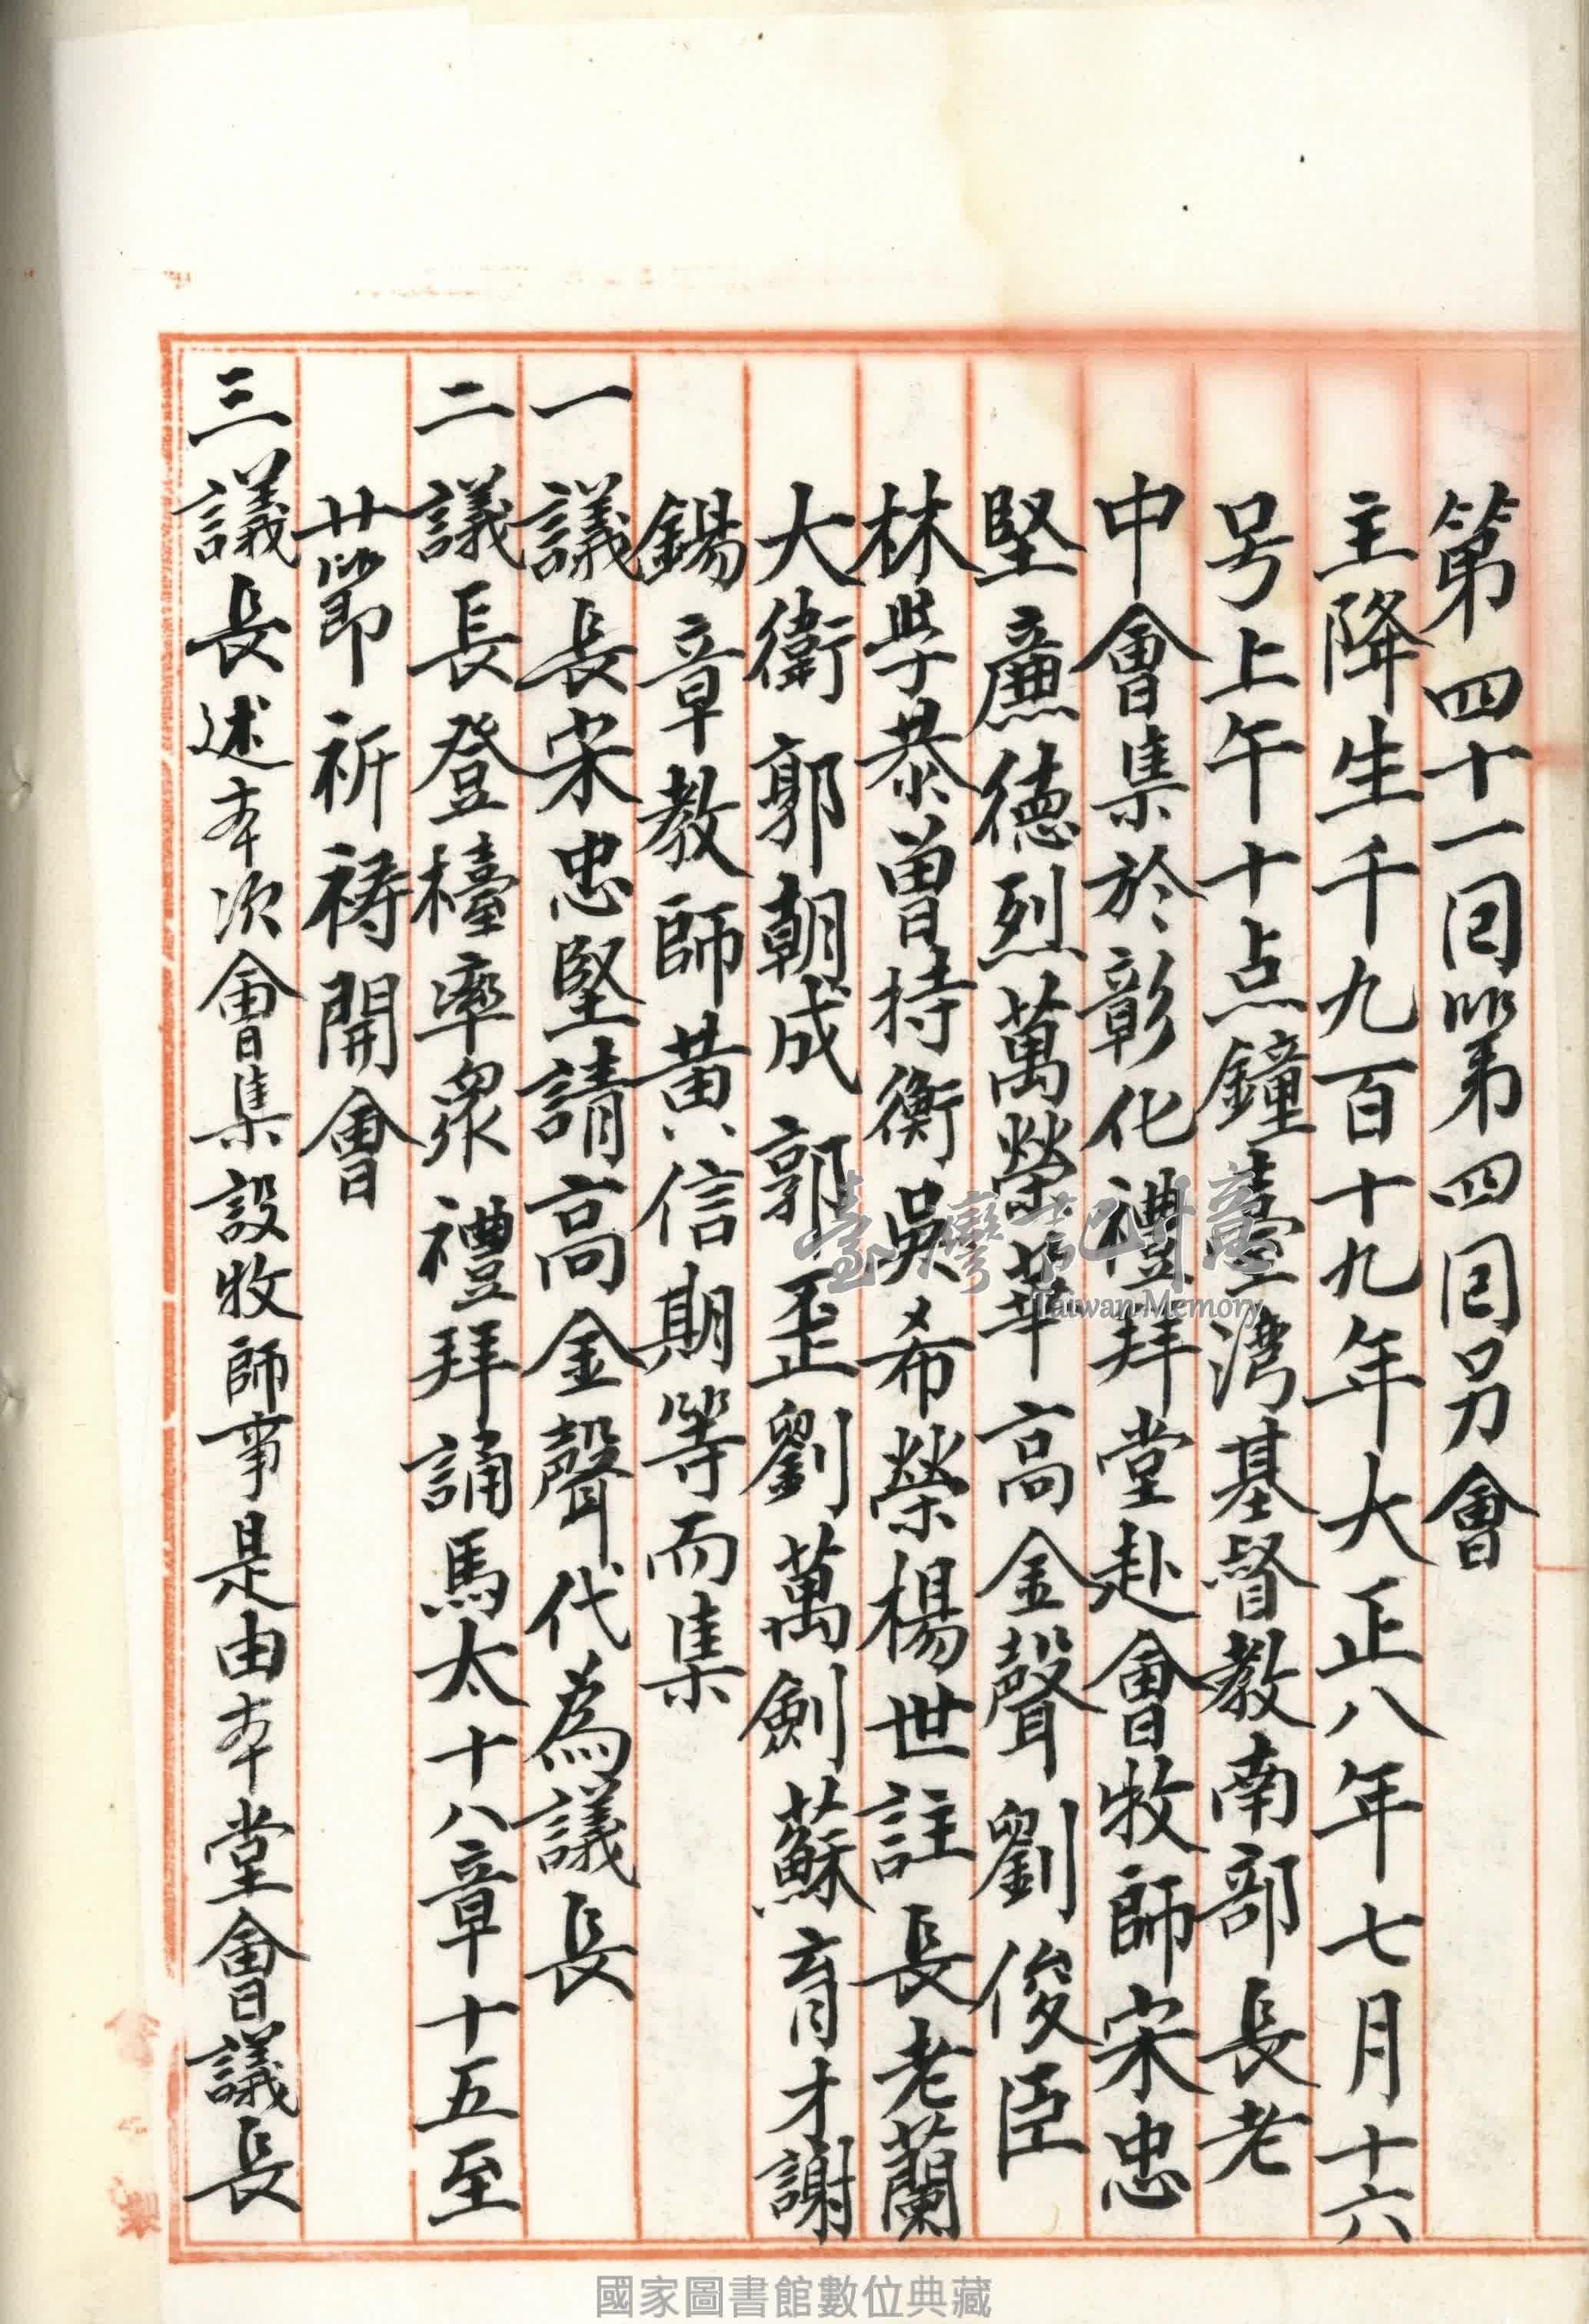 第四十一囘第四囘另會
主降生千九百十九年大正八年七月十六
号上午十点鐘臺湾基督教南部長老
中會集於彰化禮拜堂赴會牧師宋忠
堅廉德烈萬榮華高金聲劉俊臣
林学恭曽持衡吳希榮楊世註長老蘭
大衛郭朝成郭歪劉萬劍蘇育才謝
錫章教師黃信期等而集
一議長宋忠堅請高金聲代為議長
二議長登檯率眾禮拜誦馬太十八章十五至
廿節祈禱開會
三議長述本次會集設牧師事是由本堂會議長
臺灣記憶
Taiwan Memory
國家圖書館數位典藏